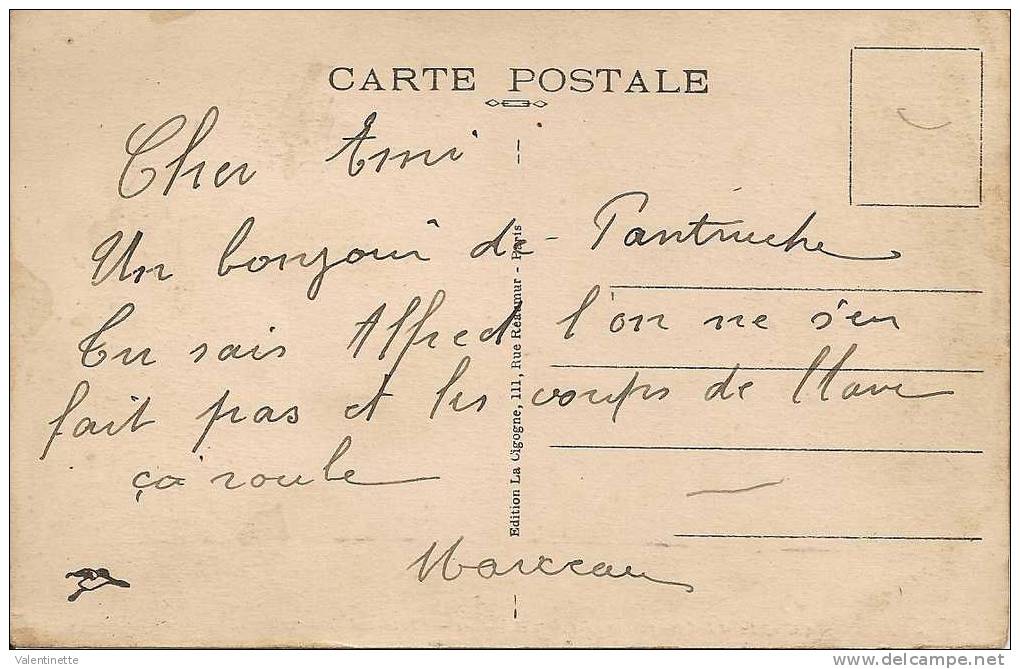 CARTE POSTALE
Cher Ami
Un bonjour de Pantruche
Tu sais Alfred l'on ne s'en
fait pas et les coups de
ça roule
Marceau
Edition La Cigogne, 111, Rue Réaumur - Paris
Valentinette
http://www.delcampe.net